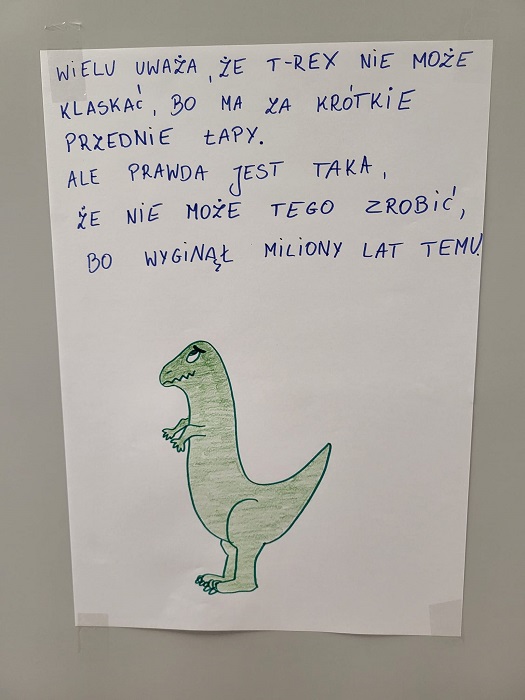 WIELU UWAŻA, ŻE T-REX NIE MOŻE
KLASKAĆ, BO MA ZA KRÓTKIE
PRZEDNIE ŁAPY.
ALE PRAWDA JEST TAKA,
ŻE NIE MOŻE TEGO ZROBIĆ,
BO WYGINĄŁ MILIONY LAT TEMU.